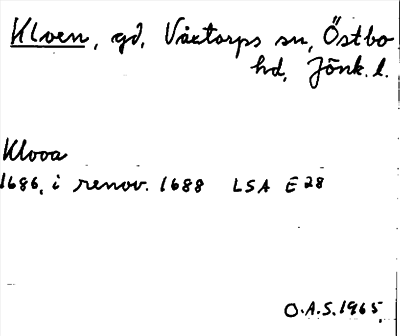 Kloen, gd, Våxtorps sn, Östbo
hd, Jönk. l.
Klooa
1686, i renov. 1688 LSA E 28
O.A.S. 1965.